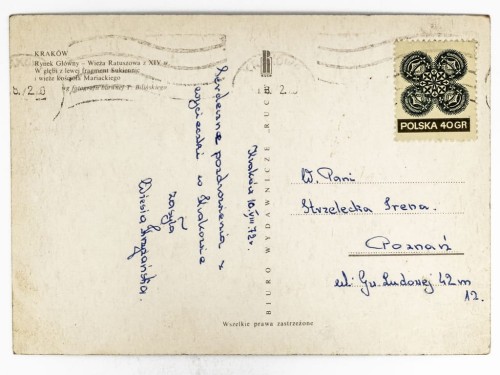 KRAKÓW
Rynek Główny – Wieża Ratuszowa z XIV w.
W głębi z lewej fragment Sukiennic
i wieże Kościoła Mariackiego
z fotografii barwnej T. Bilińskiego
POLSKA 40 GR
Kraków 10.VIII 72r.
Serdeczne pozdrowienia z
wycieczki w Krakowie
zasyła
Wiesia
BIURO WYDAWNICZE RUCH
W. Pani
Strzelecka Irena.
Poznań
ul. Gw. Ludowej 42 m
12.
Wszelkie prawa zastrzeżone